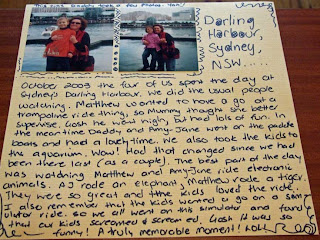 Darling
Harbour,
Sydney,
NSW.....
October 2003 the four of us spent the day at
Sydney's Darling Harbour. We did the usual people
watching. Matthew wanted to have a go at a
trampoline ride thing, so Mummy thought she better
supervise. Gosh he went high, but had lots of fun. In
the meantime Daddy and Amy-Jane went on the paddle
boats and had a lovely time. We also took the kids to
the aquarium. Wow! Had that changed since we had
been there last (as a couple). The best part of the day
was watching Matthew and Amy-Jane ride electronic
animals. AJ rode an elephant, Matthew rode a tiger.
They were so great and the kids loved the ride. I
also remember that the kids wanted to go on a sim
ulator ride. So we all went on this simulator and
our kids screamed & screamed. Gosh it was so
funny! A truly memorable moment! LOL!